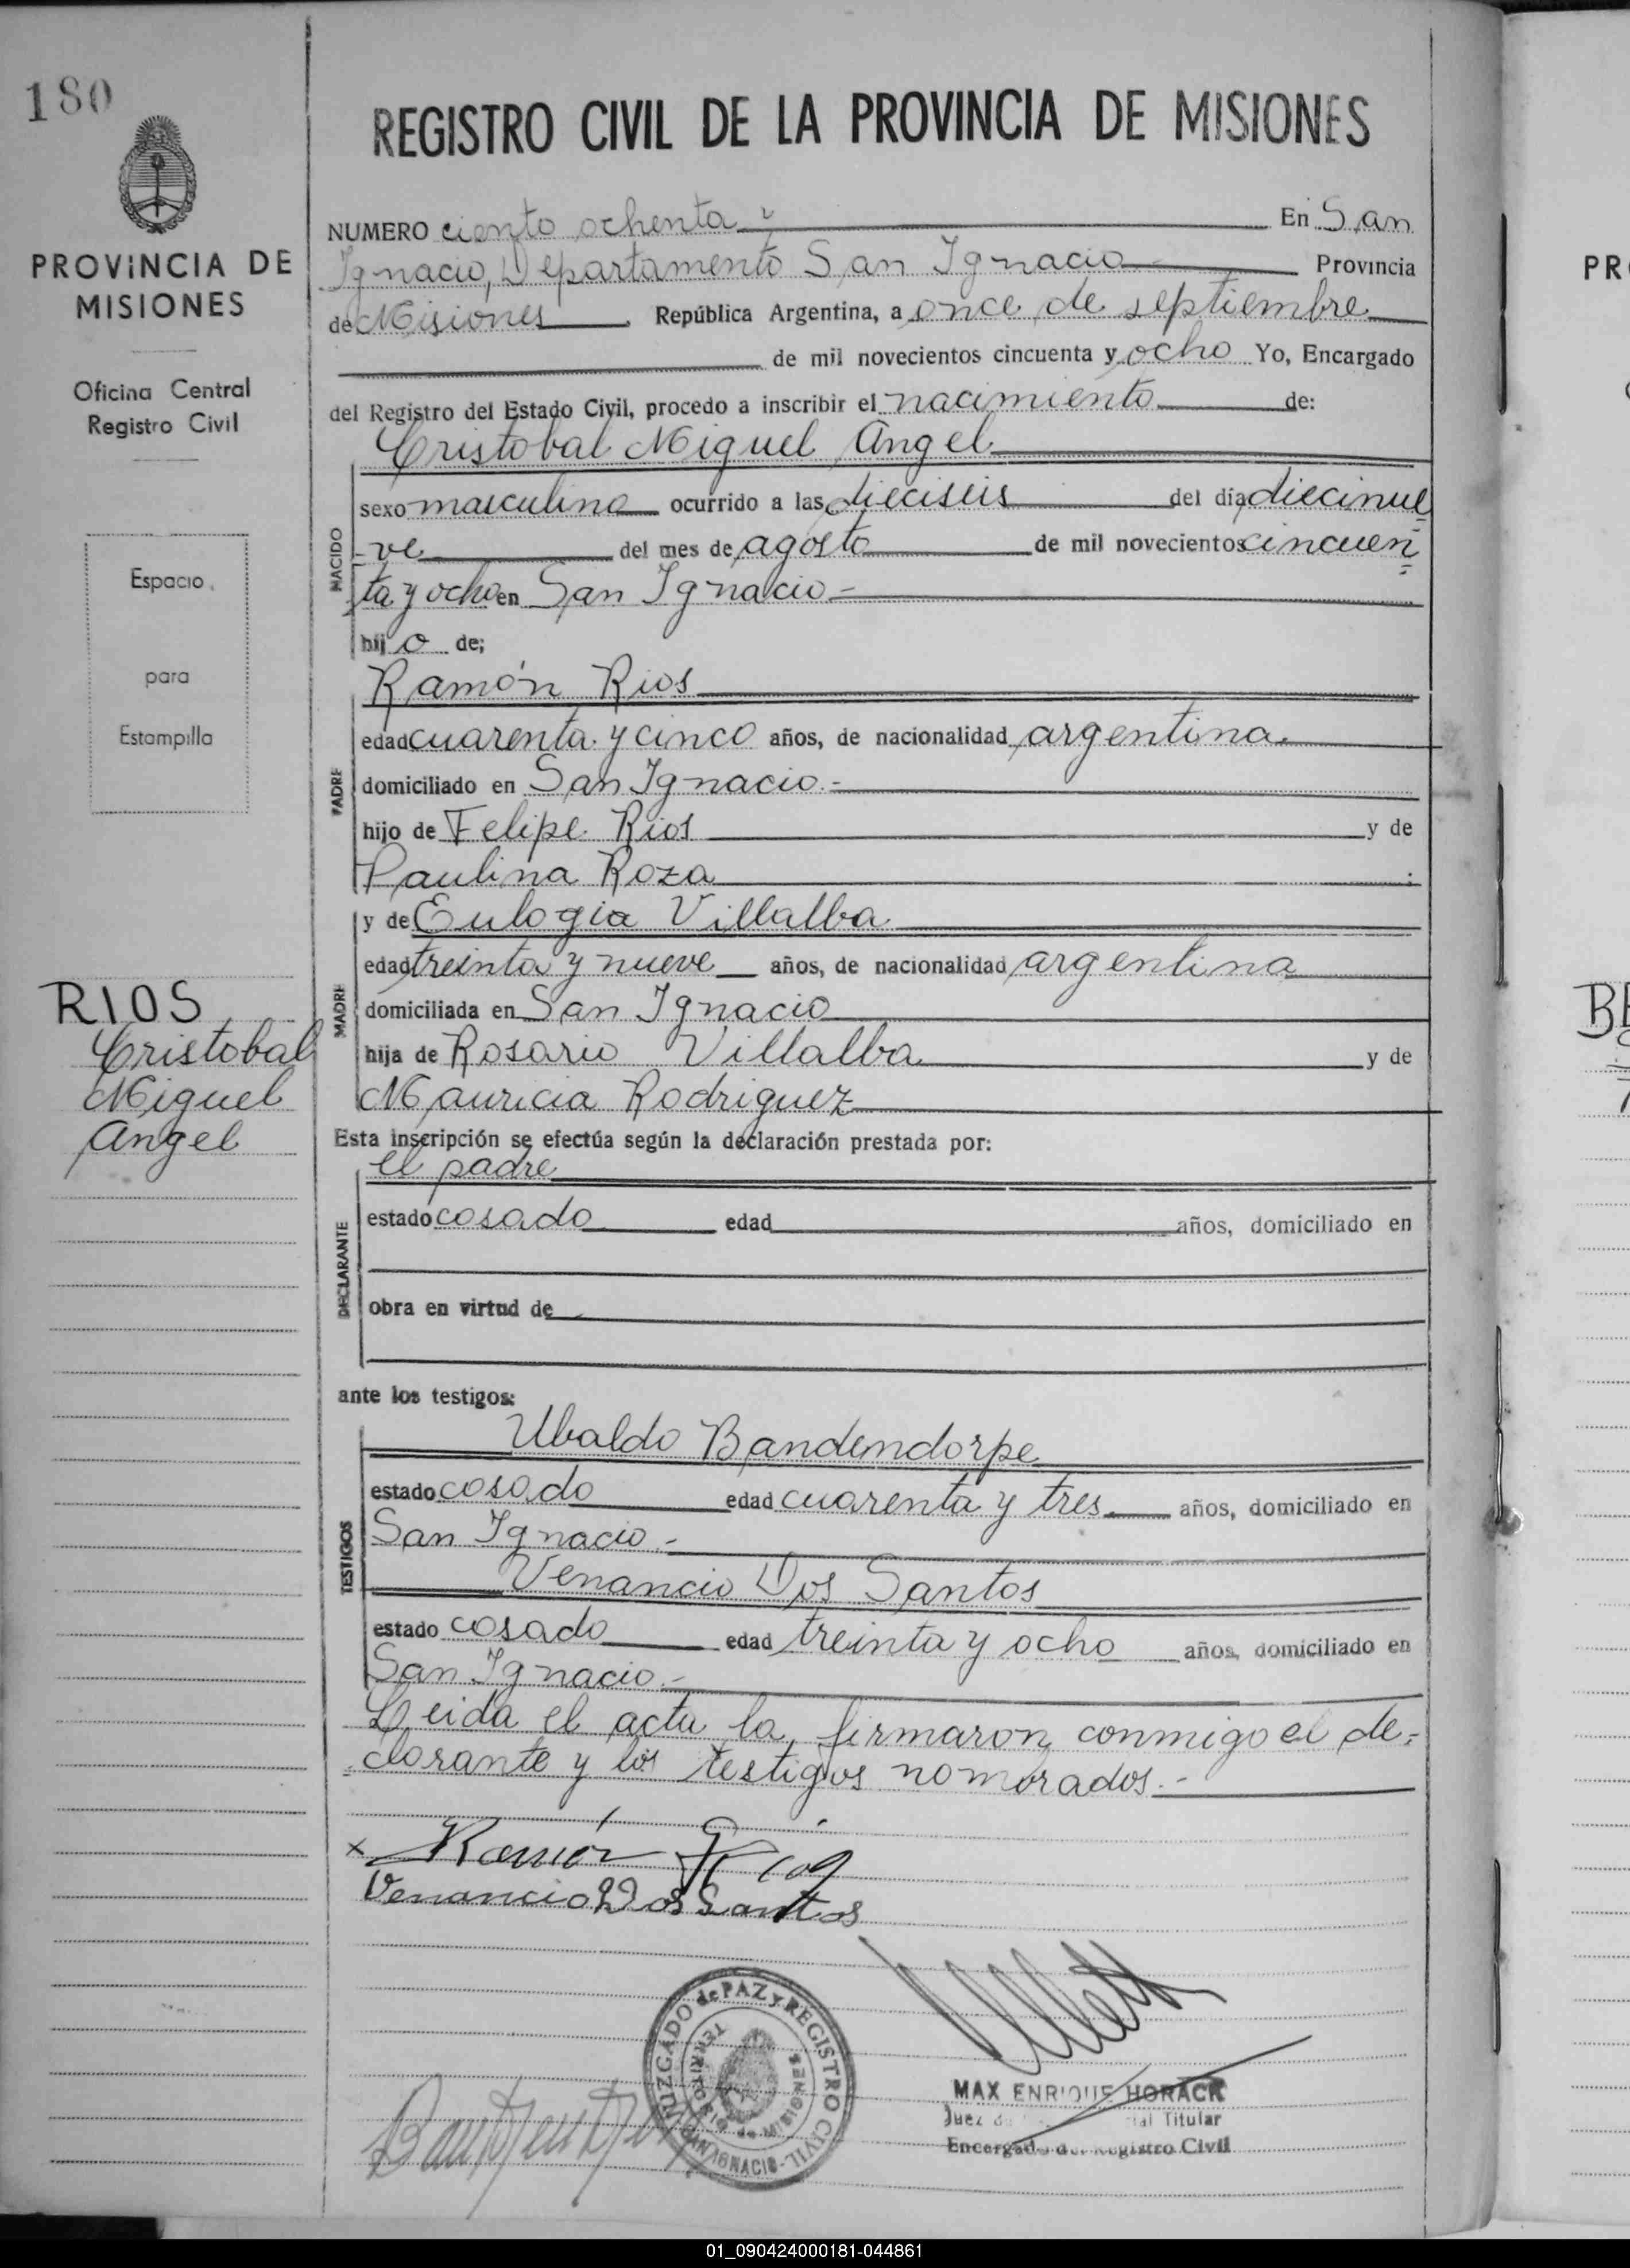 180
PROVINCIA DE
MISIONES
Oficina Central
Registro Civil
Espacio
para
Estampilla
RIOS
Cristobal
Miguel
Angel
REGISTRO CIVIL DE LA PROVINCIA DE MISIONES
NUMERO ciento ochenta En San
Ignacio, Departamento San Ignacio Provincia
de Misiones República Argentina, a once de septiembre
de mil novecientos cincuenta y ocho Yo, Encargado
del Registro del Estado Civil, procedo a inscribir el nacimiento de:
Cristobal Miguel Angel
NACIDO
sexo masculino ocurrido a las dieciseis del dia diecinue
-ve del mes de agosto de mil novecientos cincuen
ta y ocho en San Ignacio-
hijo de;
PADRE
Ramón Rios
edad cuarenta y cinco años, de nacionalidad argentina.
domiciliado en San Ignacio.-
hijo de Felipe Rios y de
Paulina Roza :
MADRE
y de Eulogia Villalba
edad treinta y nueve años, de nacionalidad argentina
domiciliada en San Ignacio
hija de Rosario Villalba y de
Mauricia Rodriguez
Esta inscripción se efectúa según la declaración prestada por:
el padre
DECLARANTE
estado cosado edad años, domiciliado en
obra en virtud de
ante los testigos:
TESTIGOS
Ubaldo Bandendorpe
estado cosado edad cuarenta y tres años, domiciliado en
San Ignacio.-
Venancio Dos Santos
estado cosado edad treinta y ocho años, domiciliado en
San Ignacio.-
Leida el acta la firmaron conmigo el de=
=clorante y los testigos nomorados.-
x Ramón Rios
Venancio Dos Santos
JUZGADO de PAZ y REGISTRO CIVIL
SAN IGNACIO
TERRITORIO de MISIONES
MAX ENRIQUE HORACK
Juez Titular
Encargado del Registro Civil
PR
BE
01_090424000181-044861